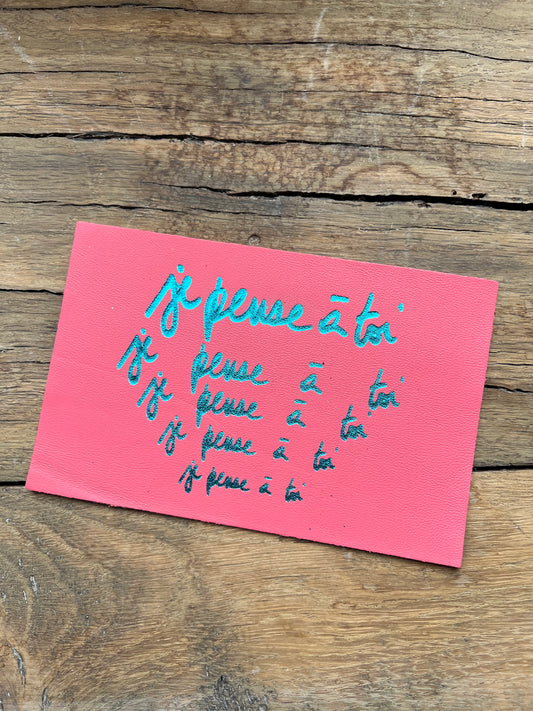 je pense à toi
je pense à toi
je pense à toi
je pense à toi
je pense à toi